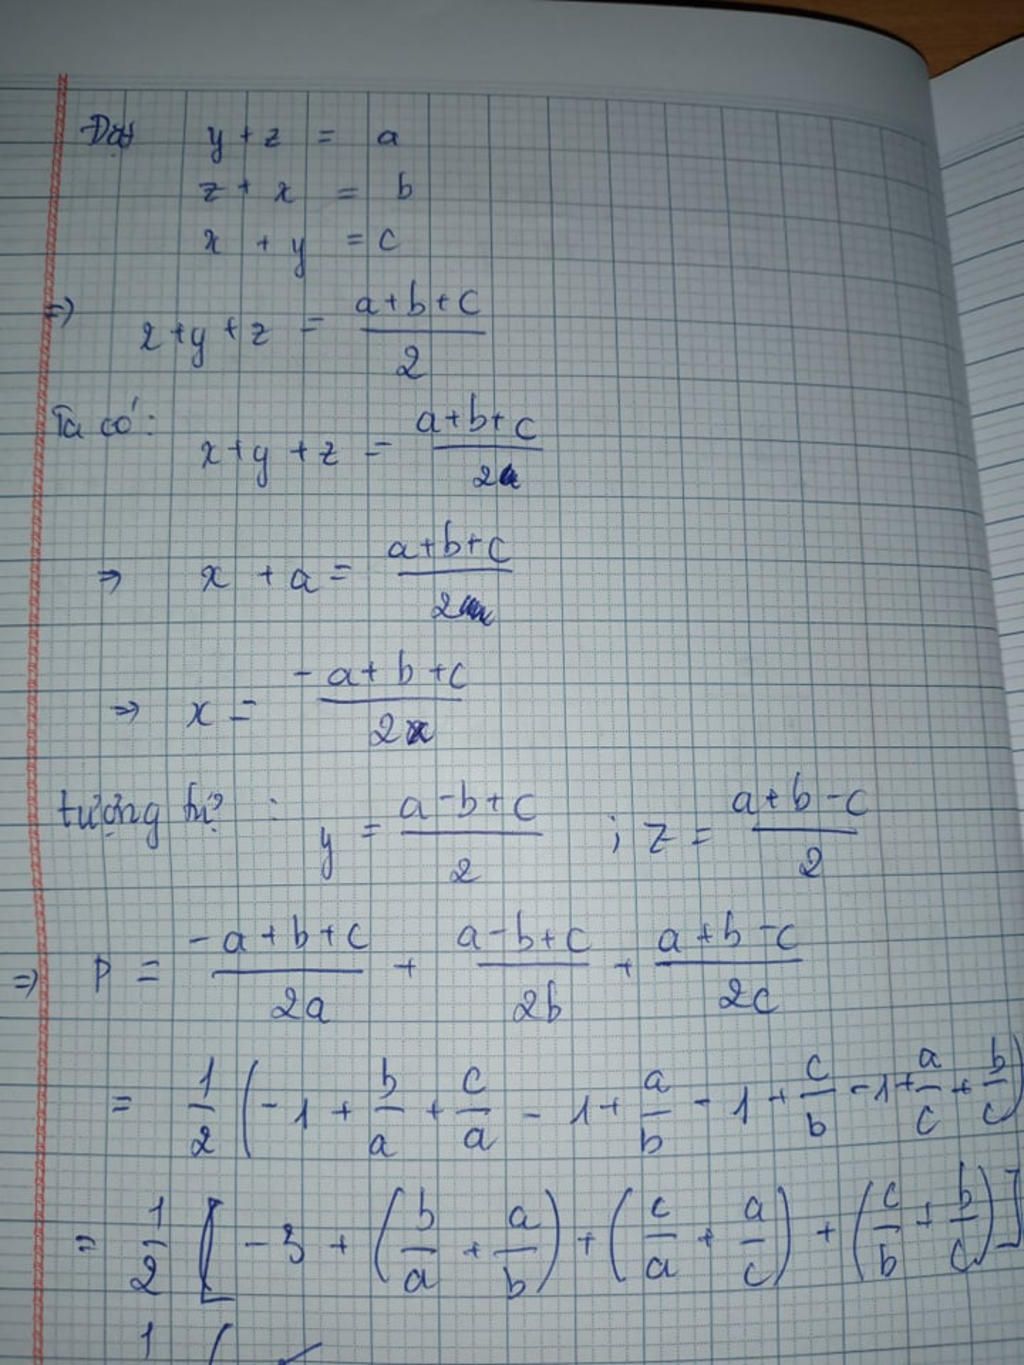 Đặt y + z = a
z + x = b
x + y = c
=> x + y + z = \frac{a+b+c}{2}
Ta có: x + y + z = \frac{a+b+c}{2}
=> x + a = \frac{a+b+c}{2}
=> x = \frac{-a+b+c}{2}
tương tự : y = \frac{a-b+c}{2} ; z = \frac{a+b-c}{2}
=> P = \frac{-a+b+c}{2a} + \frac{a-b+c}{2b} + \frac{a+b-c}{2c}
= \frac{1}{2} ( -1 + \frac{b}{a} + \frac{c}{a} - 1 + \frac{a}{b} - 1 + \frac{c}{b} - 1 + \frac{a}{c} + \frac{b}{c} )
= \frac{1}{2} [ -3 + ( \frac{b}{a} + \frac{a}{b} ) + ( \frac{c}{a} + \frac{a}{c} ) + ( \frac{c}{b} + \frac{b}{c} ) ]
1 (